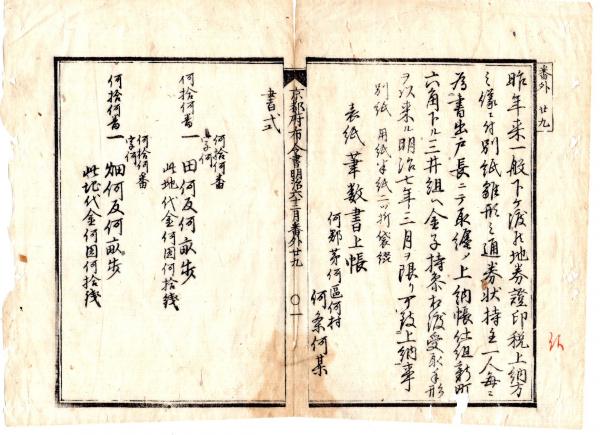 番外 廿九
昨年来一般下ケ渡候地券證印税上納方
之儀ニ付別紙雛形之通券状持主一人毎ニ
為書出戸長ニテ取纏メ上納帳仕組新町
六角下ル三井組ヘ金子持参相渡受取手形
ヲ以来ル明治七年三月ヲ限リ可致上納事
別紙 用紙半紙二ツ折袋綴
表紙 筆数書上帳
何郡第何區何村
何条何某
京都府布令書明治六十二月番外廿九
〇一
書式
何拾何番
字何
何拾何番一 田何反何畝歩
此地代金何円何拾銭
何拾何番
字何
何拾何番一 畑何反何畝歩
此地代金何円何拾銭